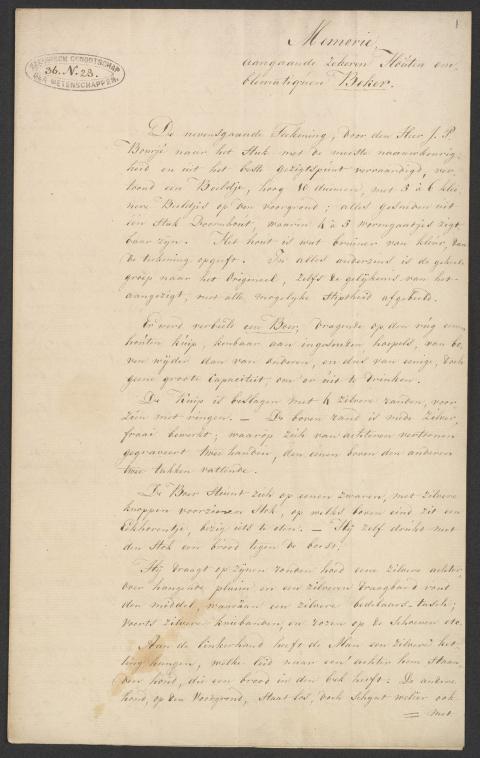 1
Memorie,
aangaande zekeren Houten em-
blematiquen Beker.
ZEEUWSCH GENOOTSCHAP
36. N. 23.
DER WETENSCHAPPEN.
De nevensgaande Teekening, door den Heer J. P.
Bourjé naar het Stuk met de meeste naauwkeurig-
heid en uit het beste gezigtspunt vervaardigd, ver-
toond een Beeldje, hoog 10 duimen, met 5 à 6 klei
nere Beeldjes op den voorgrond; alles gesneden uit
één Stuk Boomhout, waarin 4 à 5 wormgaatjes zigt
baar zijn. Het hout is wat bruiner van kleur, dan
de tekening opgeeft. In alles anderzins is de geheele
groep naar het Origineel, zelfs de gelijkenis van het
aangezigt, met alle mogelijke Stiptheid afgebeeld.
Er word verbeeld een Boer, dragende op den rug eene
houten kuip, kenbaar aan ingesneden hoepels, van bo
ven wijder dan van onderen, en dus van eenige, doch
geene groote Capaciteit, om er uit te drinken.
De Kuip is beslagen met 4 zilvere randen, voor
zien met ringen. — De boven rand is mede zilver,
fraai bewerkt; waarop zich van achteren vertoonen
gegraveert twee handen, den eenen boven den anderen
twee takken vattende.
De Boer Steunt zich op eenen zwaren, met zilvere
knoppen voorzienen Stok, op welks boven eind zit een
Eekhoorentje, bezig iets te eten. — Hij zelf drukt met
den Stok een brood tegen de borst.
Hij draagt op zijnen ronden hoed eene zilvere achter
over hangende pluim en een zilveren draagband rond
den middel, waaraan een zilvere bedelaars-tasch;
voorts zilvere kniebanden, en rozen op de Schoenen etc.
Aan de linkerhand heeft de Man een zilvere ket-
ting hangen, welke leid naar een' achter hem staan
den hond, die een brood in den bek heeft: De andere
hond, op den Voorgrond, Staat los, doch Schynt weleer ook
met